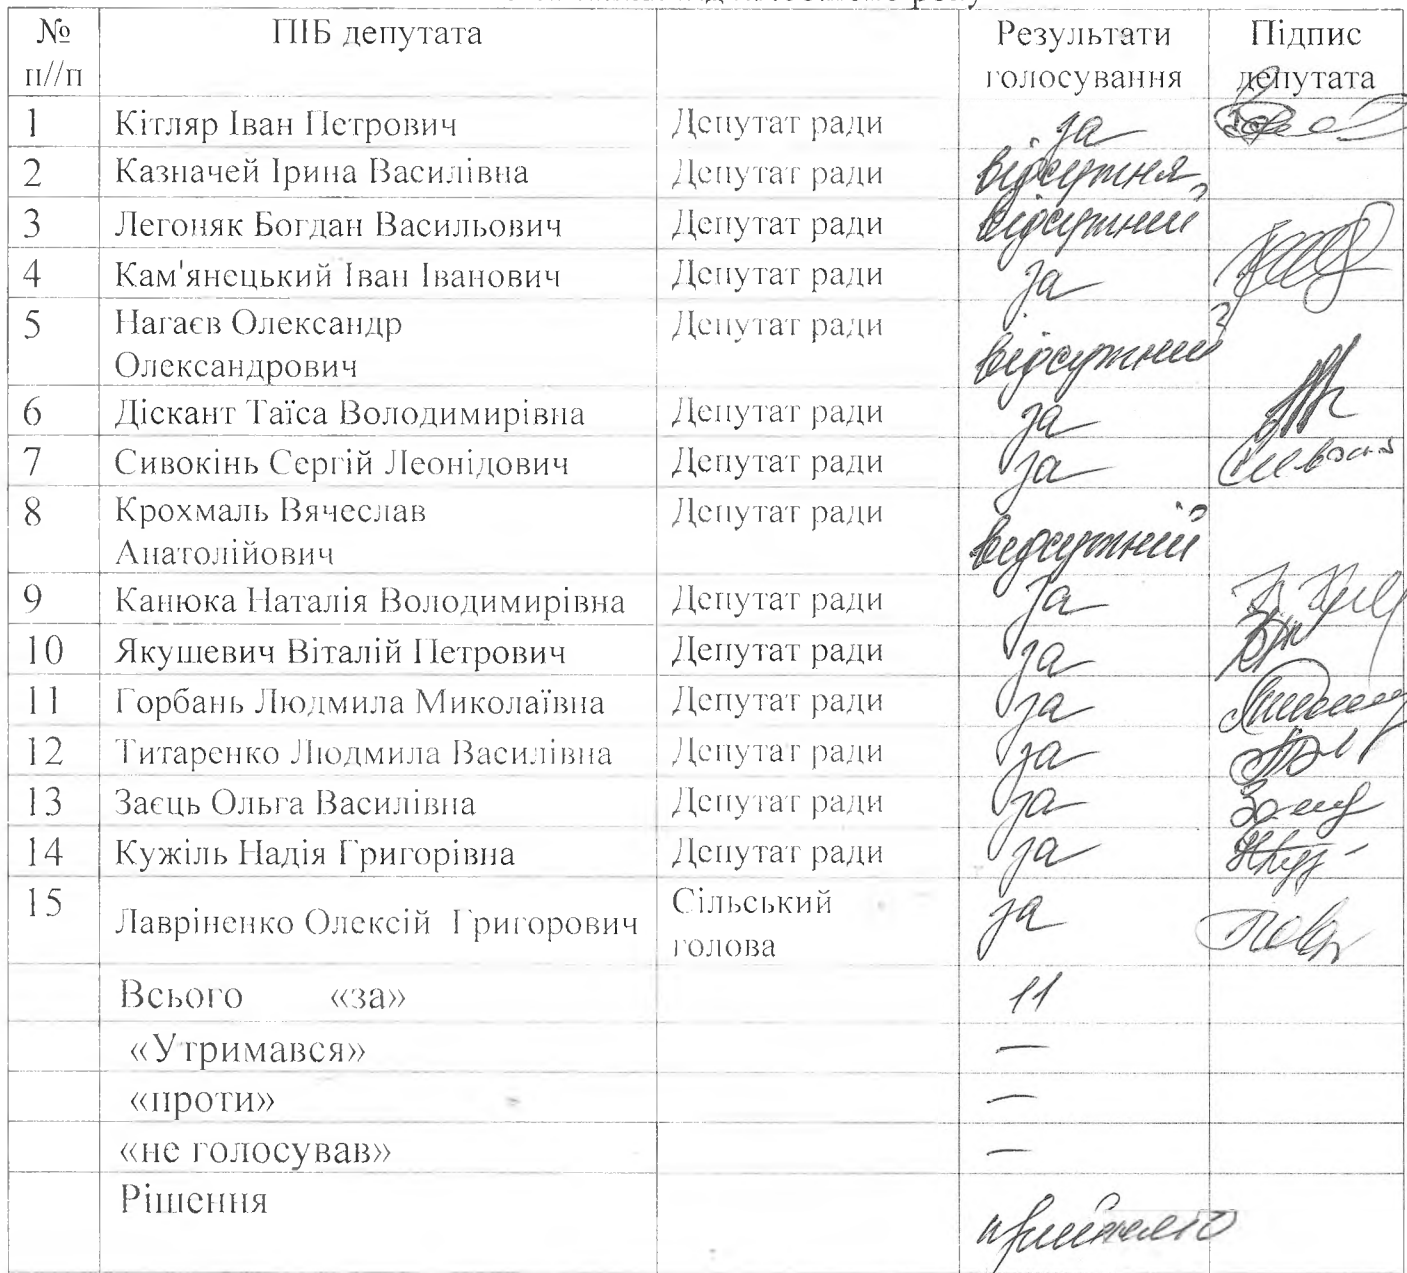 № ПІБ депутата Результати Підпис
п//п голосування депутата
1 Кітляр Іван Петрович Депутат ради за
2 Казначей Ірина Василівна Депутат ради відсутня
3 Легоняк Богдан Васильович Депутат ради відсутній
4 Кам'янецький Іван Іванович Депутат ради за
5 Нагаєв Олександр Депутат ради
Олександрович відсутній
6 Діскант Таїса Володимирівна Депутат ради за
7 Сивокінь Сергій Леонідович Депутат ради за
8 Крохмаль Вячеслав Депутат ради
Анатолійович відсутній
9 Канюка Наталія Володимирівна Депутат ради за
10 Якушевич Віталій Петрович Депутат ради за
11 Горбань Людмила Миколаївна Депутат ради за
12 Титаренко Людмила Василівна Депутат ради за
13 Заєць Ольга Василівна Депутат ради за
14 Кужіль Надія Григорівна Депутат ради за
15 Лавріненко Олексій Григорович Сільський за
голова
Всього «за» 11
«Утримався» —
«проти» —
«не голосував» —
Рішення прийнято